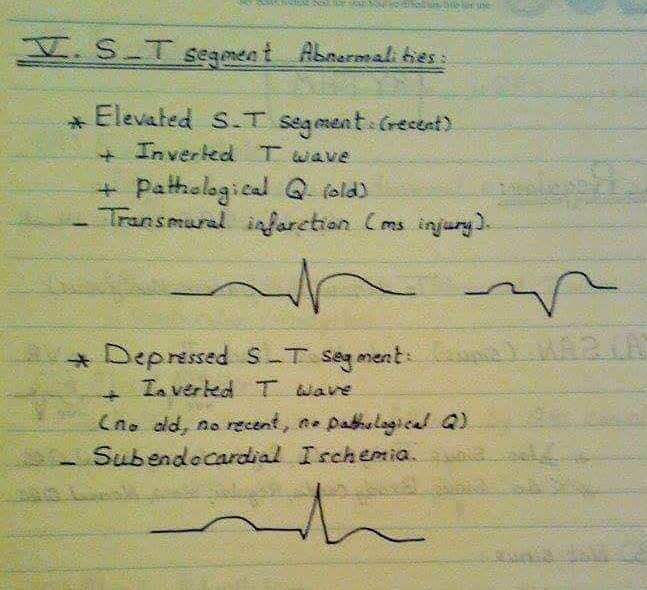 V. S-T segment Abnormalities:
* Elevated S-T segment: (recent)
+ Inverted T wave
+ Pathological Q. (old)
- Transmural infarction (ms injury).
* Depressed S-T segment:
+ Inverted T wave
(no old, no recent, no pathological Q)
- Subendocardial Ischemia.